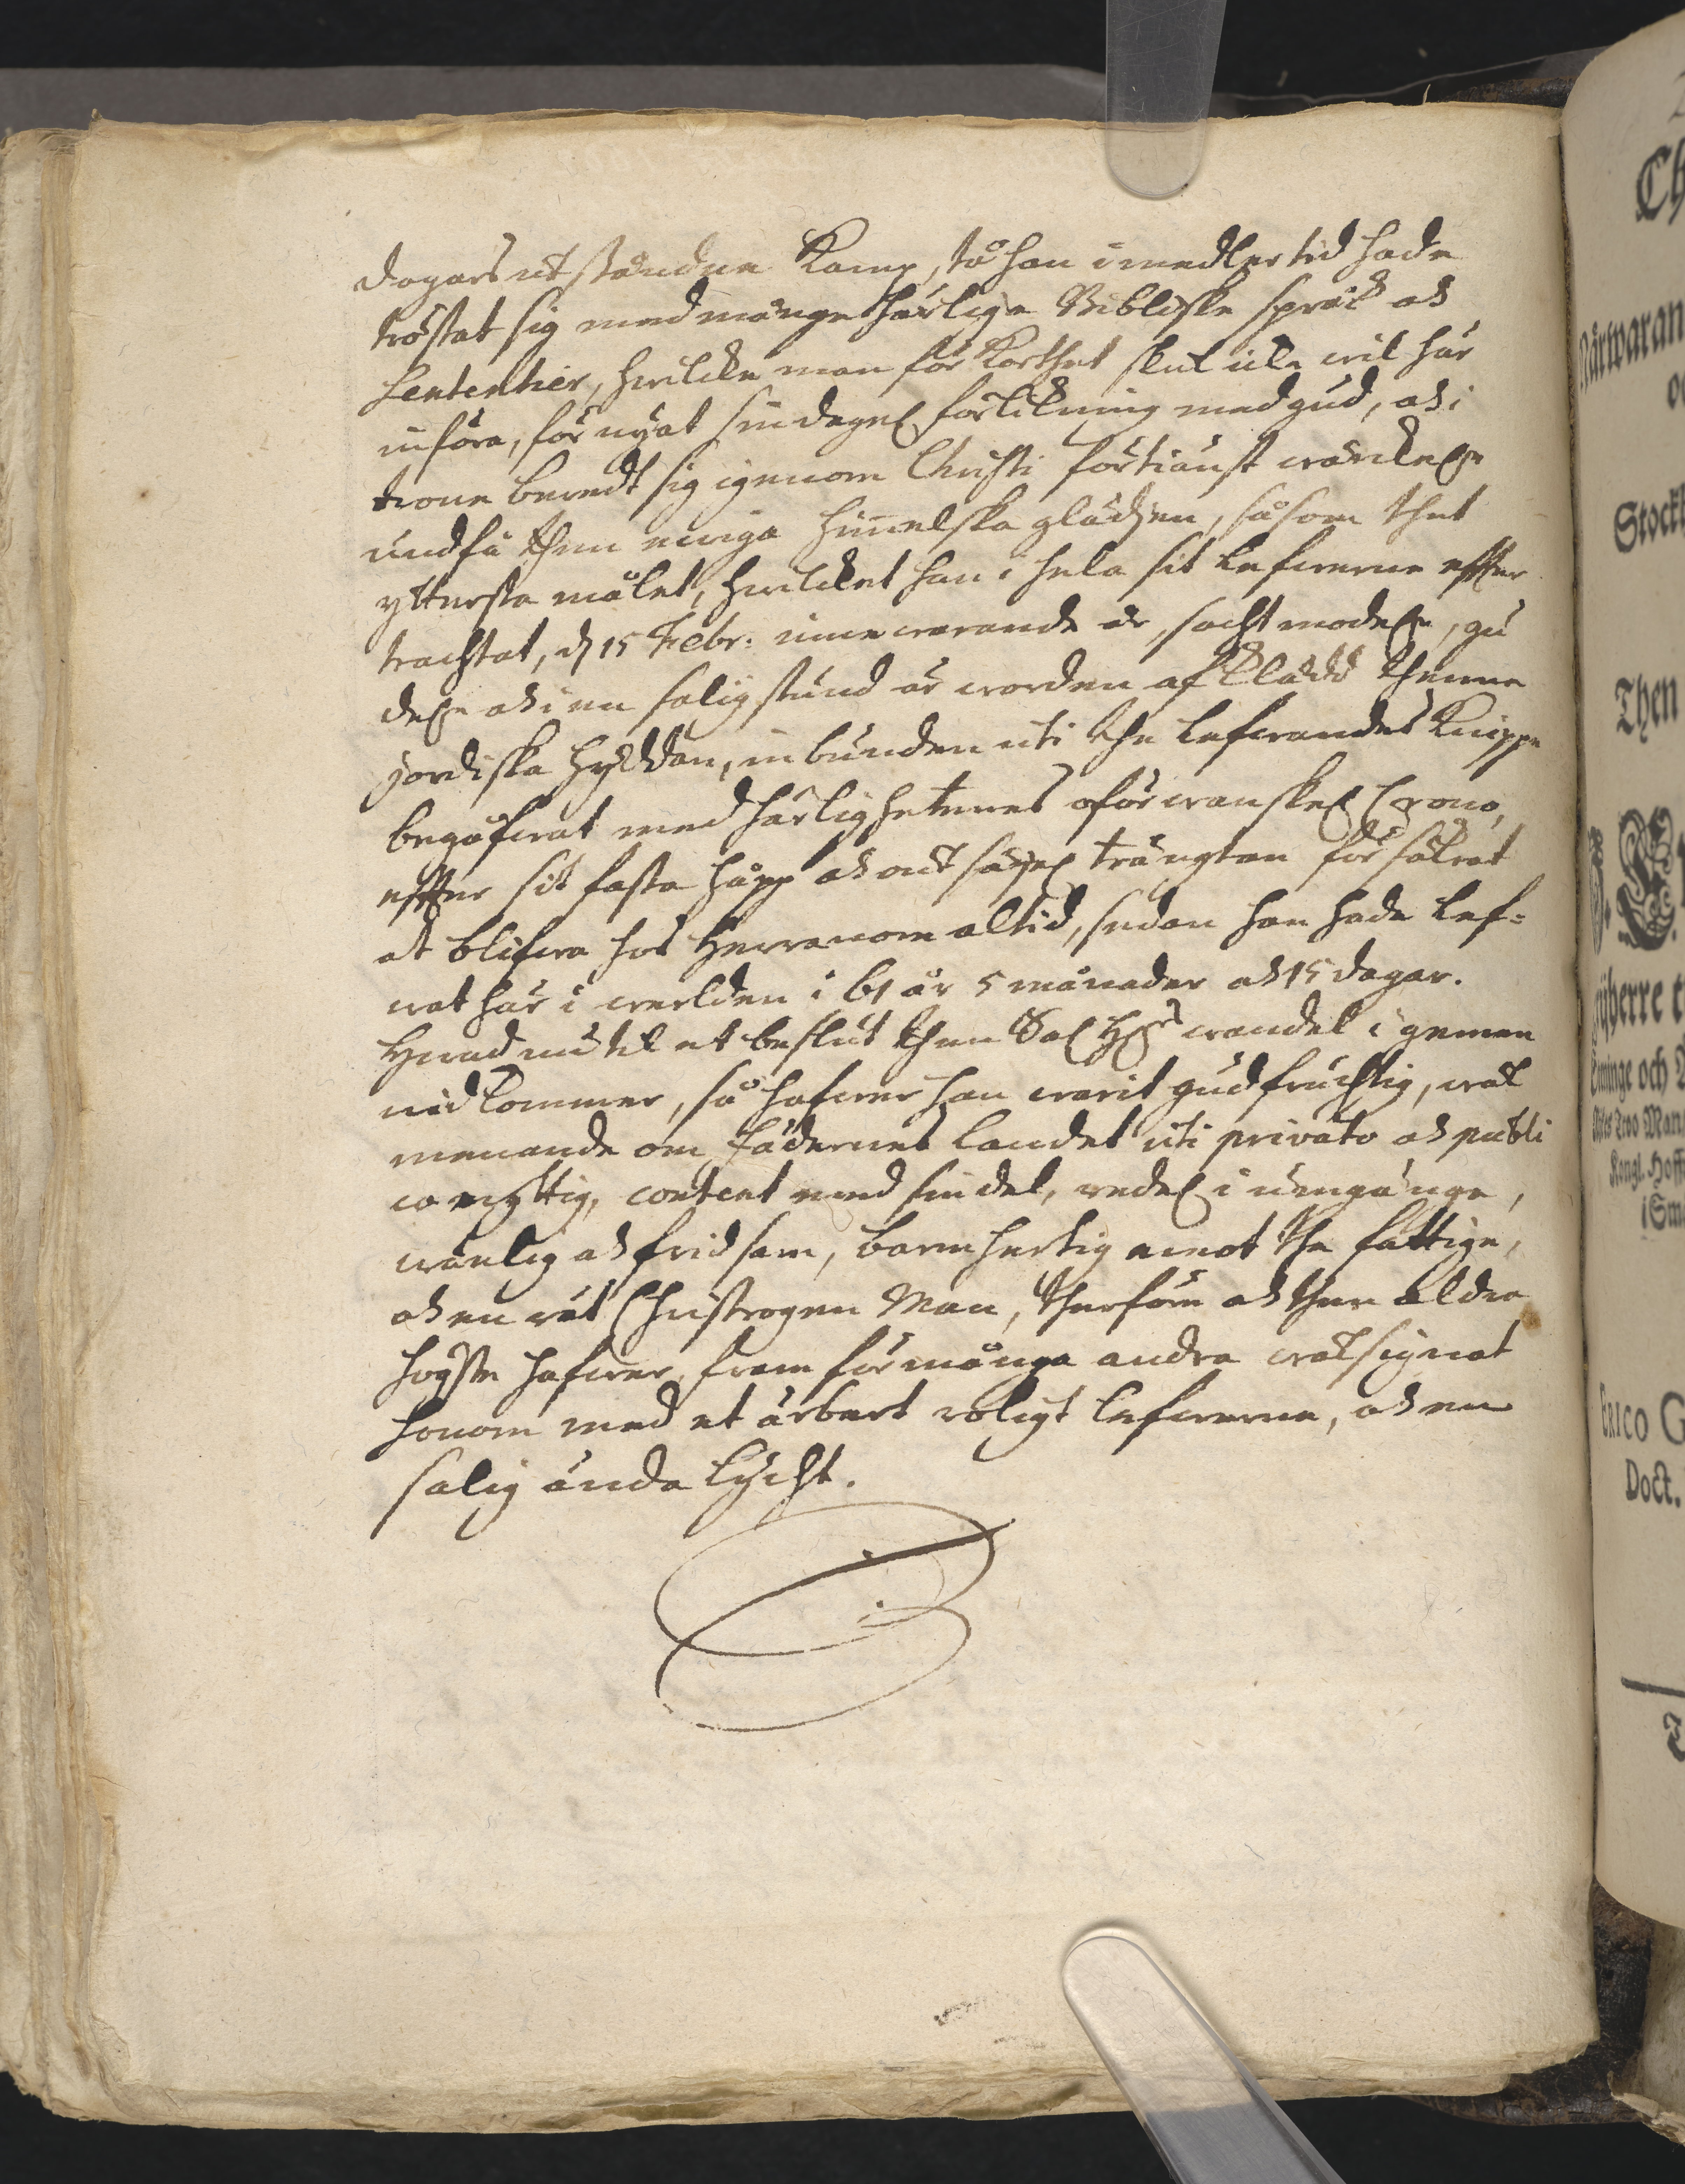 dagars utståndne Kamp, tå han imedlertid hade
tröstat sig med månge härlige Bibliske språk och
Sententier, hwilcke man för Korthet skul icke wil här
införa, förnyat sin dagel. förlikning med gud, och i
trone beredt sig igenom Christi förtiänst
undfå then ewiga himelska glädjen, såsom thet
yttersta målet, hwilcket han i hela sit lefwerne effter
trachtat, d. 15 Febr: innewarande år, sachtmodel., gu
del. och i en salig stund är worden afklädd thenne
jordiska hyddan, inbunden uti the lefwandes Knippe
begåfwat med härlighetenes oförwanskel. Crono,
effter sit fasta håpp och outsäjel. trängtan försäkrat
at blifwa hos Herranom altid, sedan han hade lef-
wat här i werlden i 61 år 5 månader och 15 dagar.
Hwad nu til et beslut then Sal. H. wandel i gemen
widkommer, så hafwer han warit gudfruchtig, wäl
menande om fädernes landet uti privato och publi
co nyttig, content med sin del, redel. i umgänge,
wänlig och fridsam, barmhertig emot the fattige,
och en rät Christrogen Man, therföre och then aldra
högste hafwer fram för många andra wälsignat
honom med et ärbart roligt lefwerne, och en
salig ända lycht.
Ch
Närwaran
Stockh
Then
yherre
ninge och
Two Man
Kongl. Hoff
i Sm
ERICO G
Doct.